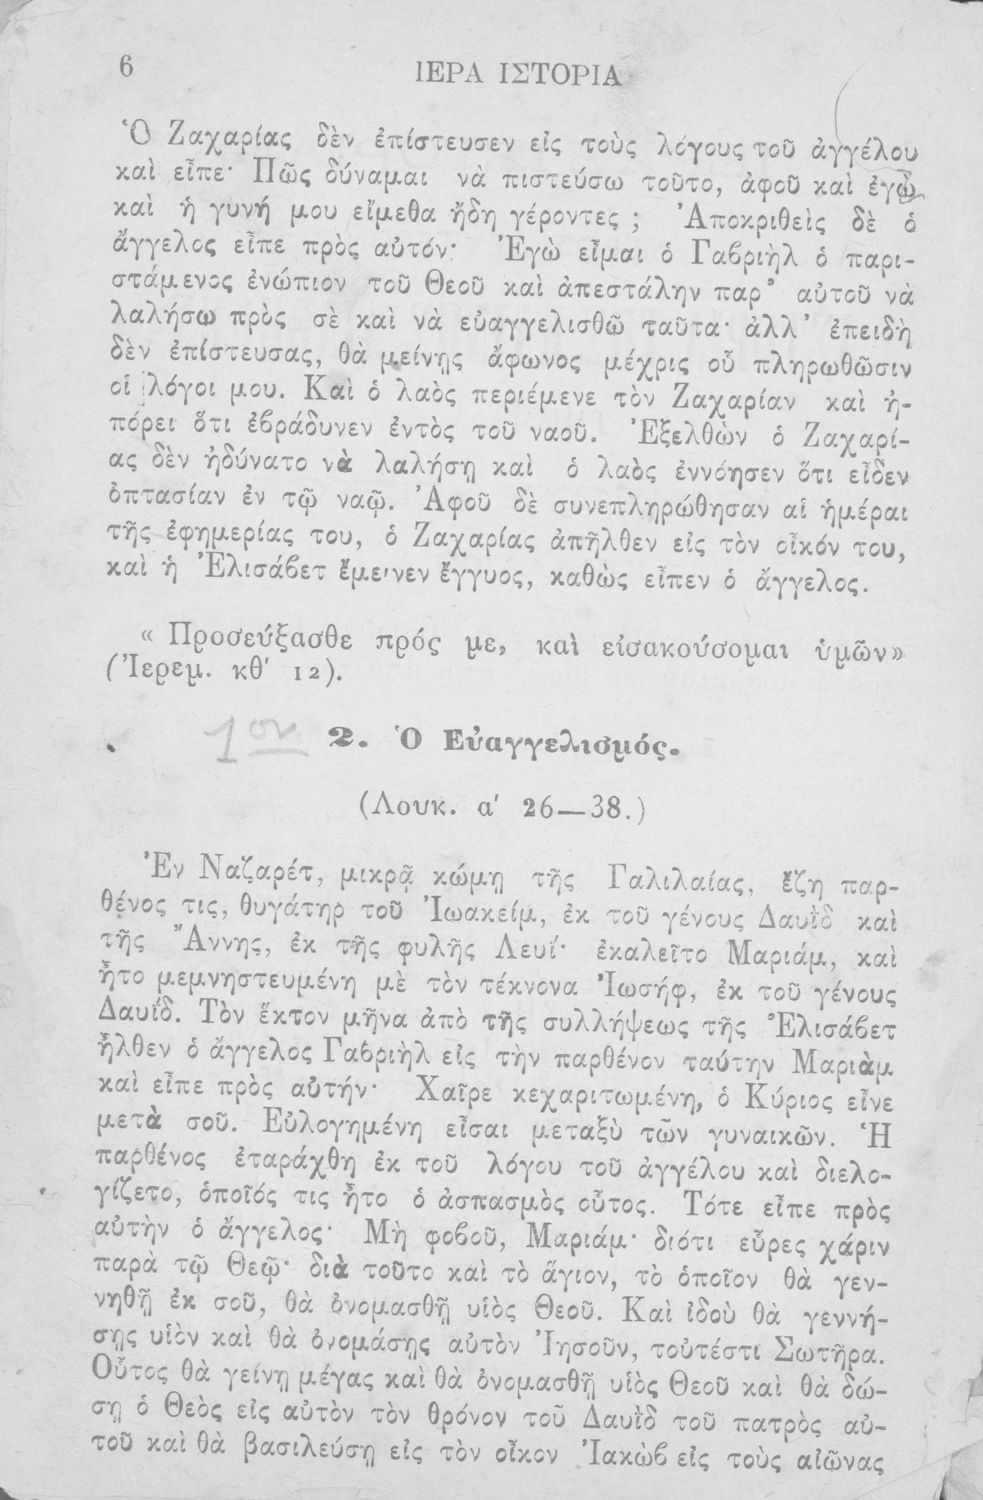 6
ΙΕΡΑ ΙΣΤΟΡΙΑ
Ὁ Ζαχαρίας δὲν ἐπίστευσεν εἰς τοὺς λόγους τοῦ ἀγγέλου
καὶ εἶπε· Πῶς δύναμαι νὰ πιστεύσω τοῦτο, ἀφοῦ καὶ ἐγὼ
καὶ ἡ γυνή μου εἴμεθα ἤδη γέροντες ; Ἀποκριθεὶς δὲ ὁ
ἄγγελος εἶπε πρὸς αὐτόν· Ἐγὼ εἶμαι ὁ Γαβριὴλ ὁ παρι-
στάμενος ἐνώπιον τοῦ Θεοῦ καὶ ἀπεστάλην παρ' αὐτοῦ νὰ
λαλήσω πρὸς σὲ καὶ νὰ εὐαγγελισθῶ ταῦτα· ἀλλ' ἐπειδὴ
δὲν ἐπίστευσας, θὰ μείνῃς ἄφωνος μέχρις οὗ πληρωθῶσιν
οἱ λόγοι μου. Καὶ ὁ λαὸς περιέμενε τὸν Ζαχαρίαν καὶ ἠ-
πόρει ὅτι ἐβράδυνεν ἐντὸς τοῦ ναοῦ. Ἐξελθὼν ὁ Ζαχαρί-
ας δὲν ἠδύνατο νὰ λαλήσῃ καὶ ὁ λαὸς ἐννόησεν ὅτι εἶδεν
ὀπτασίαν ἐν τῷ ναῷ. Ἀφοῦ δὲ συνεπληρώθησαν αἱ ἡμέραι
τῆς ἐφημερίας του, ὁ Ζαχαρίας ἀπῆλθεν εἰς τὸν οἶκόν του,
καὶ ἡ Ἐλισάβετ ἔμεινεν ἔγγυος, καθὼς εἶπεν ὁ ἄγγελος.
« Προσεύξασθε πρός με, καὶ εἰσακούσομαι ὑμῶν»
(Ἰερεμ. κθ' 12).
1ον 2. Ὁ Εὐαγγελισμός.
(Λουκ. α' 26—38.)
Ἐν Ναζαρέτ, μικρᾷ κώμῃ τῆς Γαλιλαίας, ἔζη παρ-
θένος τις, θυγάτηρ τοῦ Ἰωακείμ, ἐκ τοῦ γένους Δαυῒδ καὶ
τῆς Ἄννης, ἐκ τῆς φυλῆς Λευΐ· ἐκαλεῖτο Μαριάμ, καὶ
ἦτο μεμνηστευμένη μὲ τὸν τέκνονα Ἰωσήφ, ἐκ τοῦ γένους
Δαυΐδ. Τὸν ἕκτον μῆνα ἀπὸ τῆς συλλήψεως τῆς Ἐλισάβετ
ἦλθεν ὁ ἄγγελος Γαβριὴλ εἰς τὴν παρθένον ταύτην Μαριὰμ
καὶ εἶπε πρὸς αὐτήν· Χαῖρε κεχαριτωμένη, ὁ Κύριος εἶνε
μετὰ σοῦ. Εὐλογημένη εἶσαι μεταξὺ τῶν γυναικῶν. Ἡ
παρθένος ἐταράχθη ἐκ τοῦ λόγου τοῦ ἀγγέλου καὶ διελο-
γίζετο, ὁποῖός τις ἦτο ὁ ἀσπασμὸς οὗτος. Τότε εἶπε πρὸς
αὐτὴν ὁ ἄγγελος· Μὴ φοβοῦ, Μαριάμ· διότι εὗρες χάριν
παρὰ τῷ Θεῷ· διὰ τοῦτο καὶ τὸ ἅγιον, τὸ ὁποῖον θὰ γεν-
νηθῇ ἐκ σοῦ, θὰ ὀνομασθῇ υἱὸς Θεοῦ. Καὶ ἰδοὺ θὰ γεννή-
σῃς υἱὸν καὶ θὰ ὀνομάσῃς αὐτὸν Ἰησοῦν, τοὐτέστι Σωτῆρα.
Οὗτος θὰ γείνῃ μέγας καὶ θὰ ὀνομασθῇ υἱὸς Θεοῦ καὶ θὰ δώ-
σῃ ὁ Θεὸς εἰς αὐτὸν τὸν θρόνον τοῦ Δαυῒδ τοῦ πατρὸς αὐ-
τοῦ καὶ θὰ βασιλεύσῃ εἰς τὸν οἶκον Ἰακὼβ εἰς τοὺς αἰῶνας